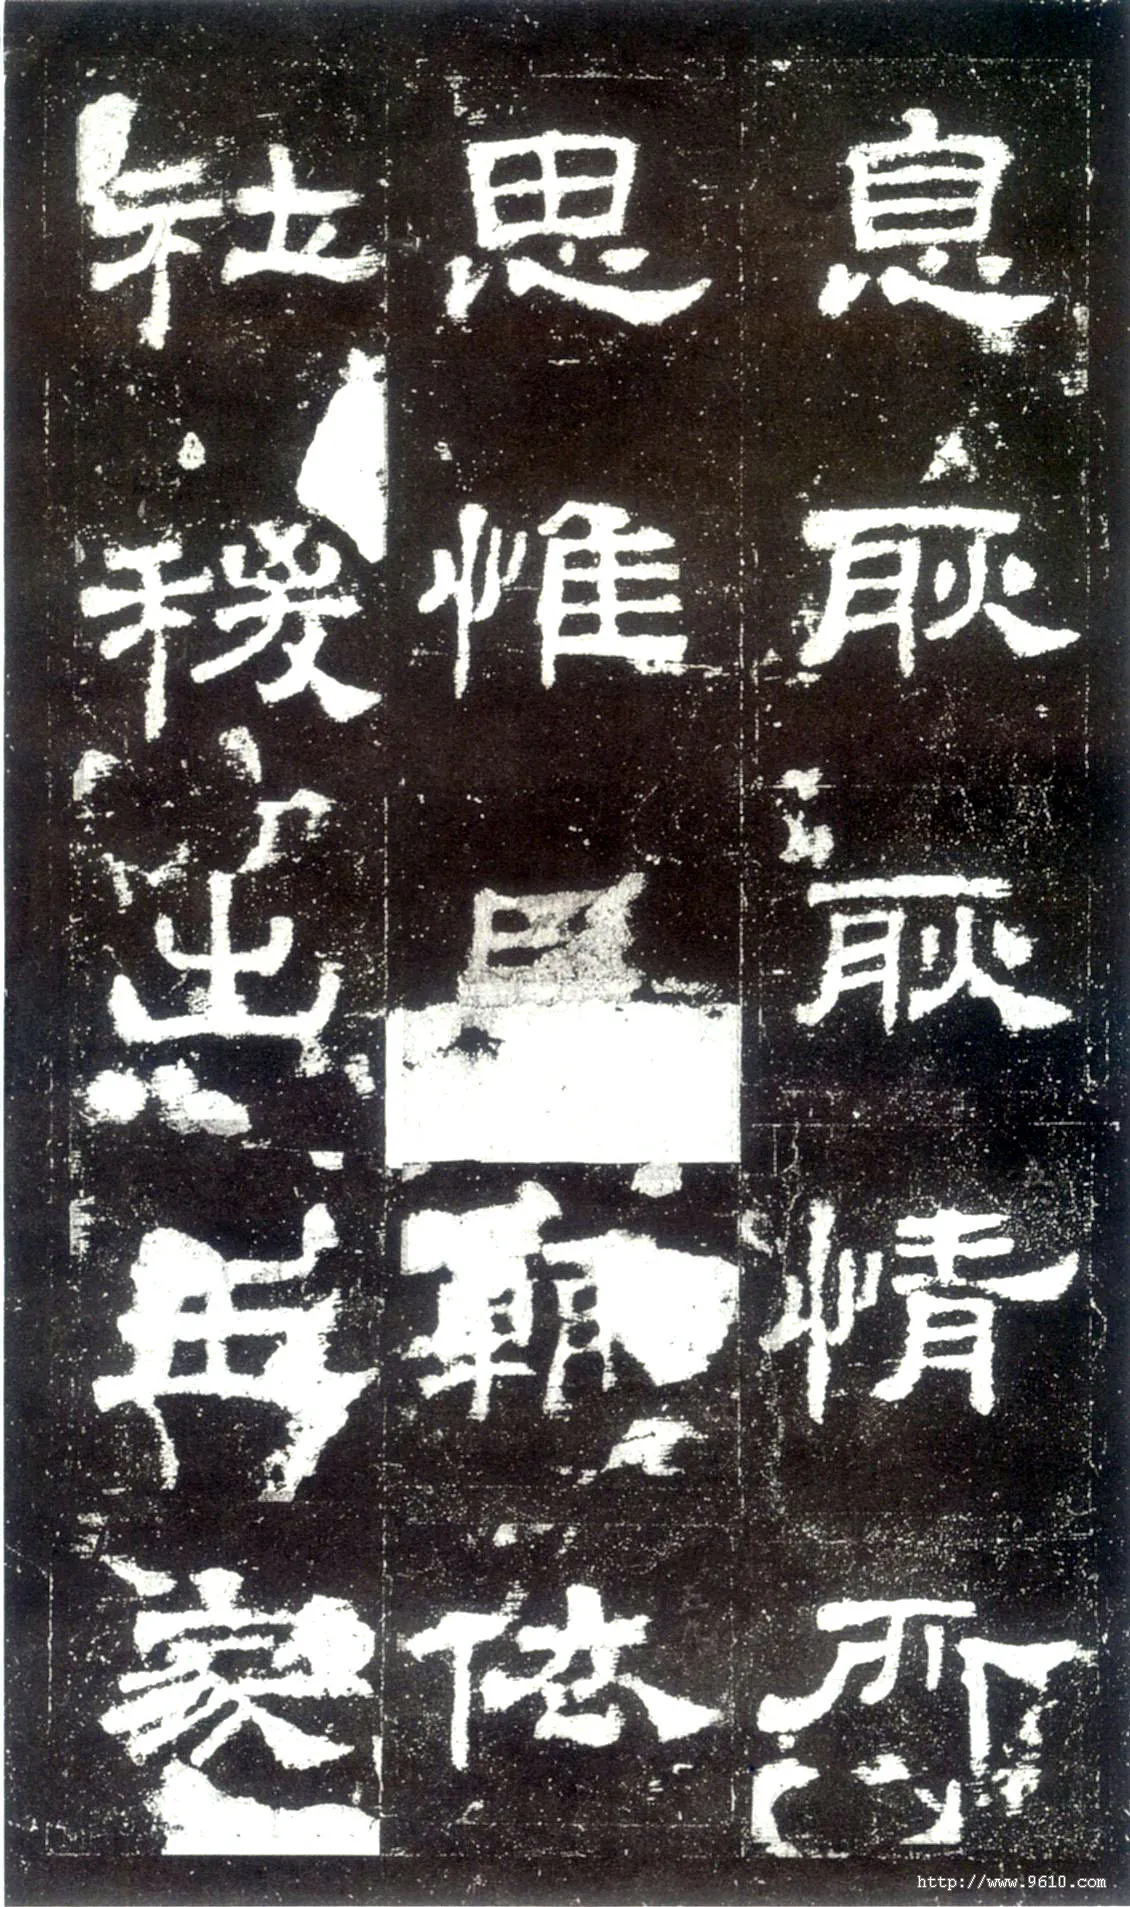 息耿耿情所
思惟臣輒依
社稷出王家
http://www.9610.com